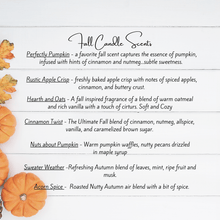 Fall Candle Scents
Perfectly Pumpkin - a favorite fall scent captures the essence of pumpkin,
infused with hints of cinnamon and nutmeg..subtle sweetness.
Rustic Apple Crisp - freshly baked apple crisp with notes of spiced apples,
cinnamon, and buttery crust.
Hearth and Oats - A fall inspired fragrance of a blend of warm oatmeal
and rich vanilla with a touch of cirturs. Soft and Cozy
Cinnamon Twist - The Ultimate Fall blend of cinnamon, nutmeg, allspice,
vanilla, and caramelized brown sugar.
Nuts about Pumpkin - Warm pumpkin waffles, nutty pecans drizzled
in maple syrup
Sweater Weather -Refreshing Autumn blend of leaves, mint, ripe fruit and
musk.
Acorn Spice - Roasted Nutty Autumn air blend with a bit of spice.